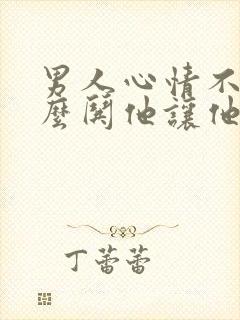 男人心情不
麼鬨他讓他
丁蕾蕾